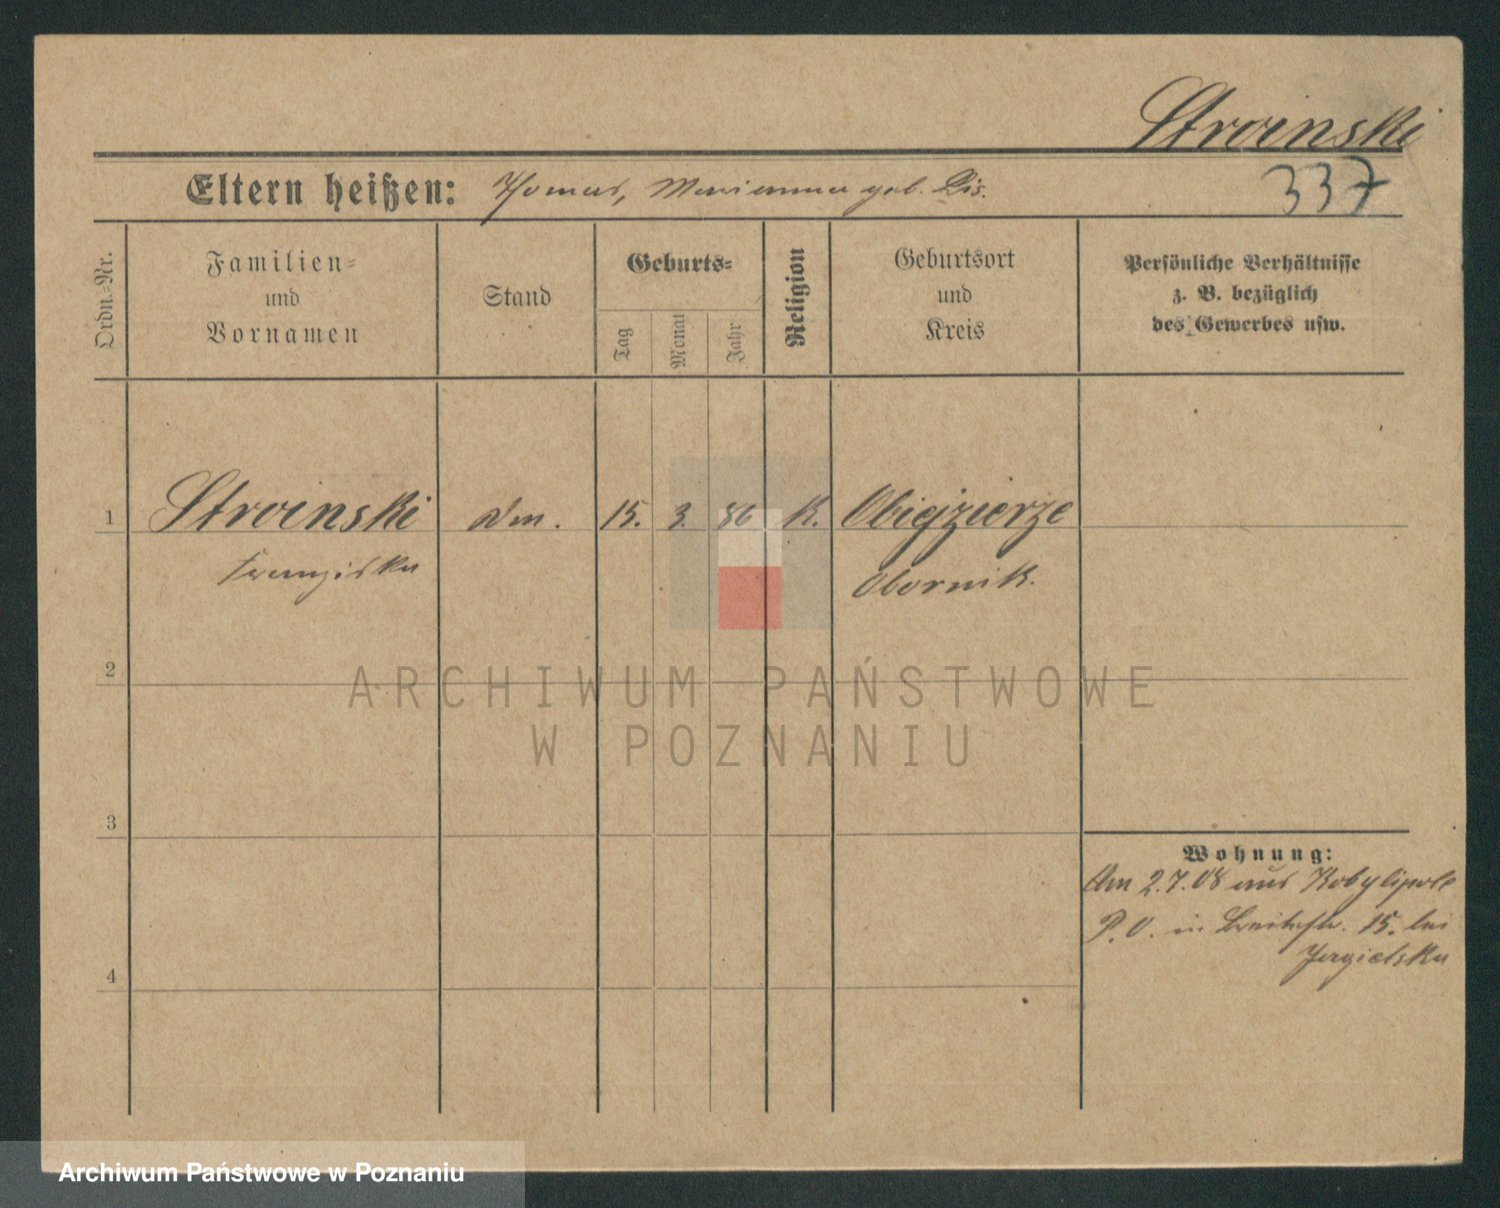 Stroinski
Eltern heißen: Thomas, Marianna geb. Lis.
337
Ordn.-Nr.
Familien-
und
Vornamen
Stand
Geburts-
Tag
Monat
Jahr
Religion
Geburtsort
und
Kreis
Persönliche Verhältnisse
z. B. bezüglich
des Gewerbes usw.
1 Stroinski 15. 3. 86 K. Objezierze
Franziska Obornik.
2
ARCHIWUM PAŃSTWOWE
W POZNANIU
3
Wohnung:
Am 2.7.08 aus Kobylipole
P. O. in Breitestr. 15. bei
4
Archiwum Państwowe w Poznaniu